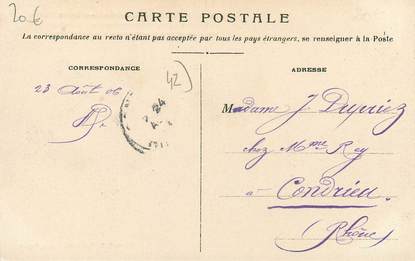 20 €
CARTE POSTALE
La correspondance au recto n'étant pas acceptée par tous les pays étrangers, se renseigner à la Poste
CORRESPONDANCE
ADRESSE
42
23 Août 06
24
Madame J. Dupuiz
chez Mme Rey
à
Condrieu
(Rhône)